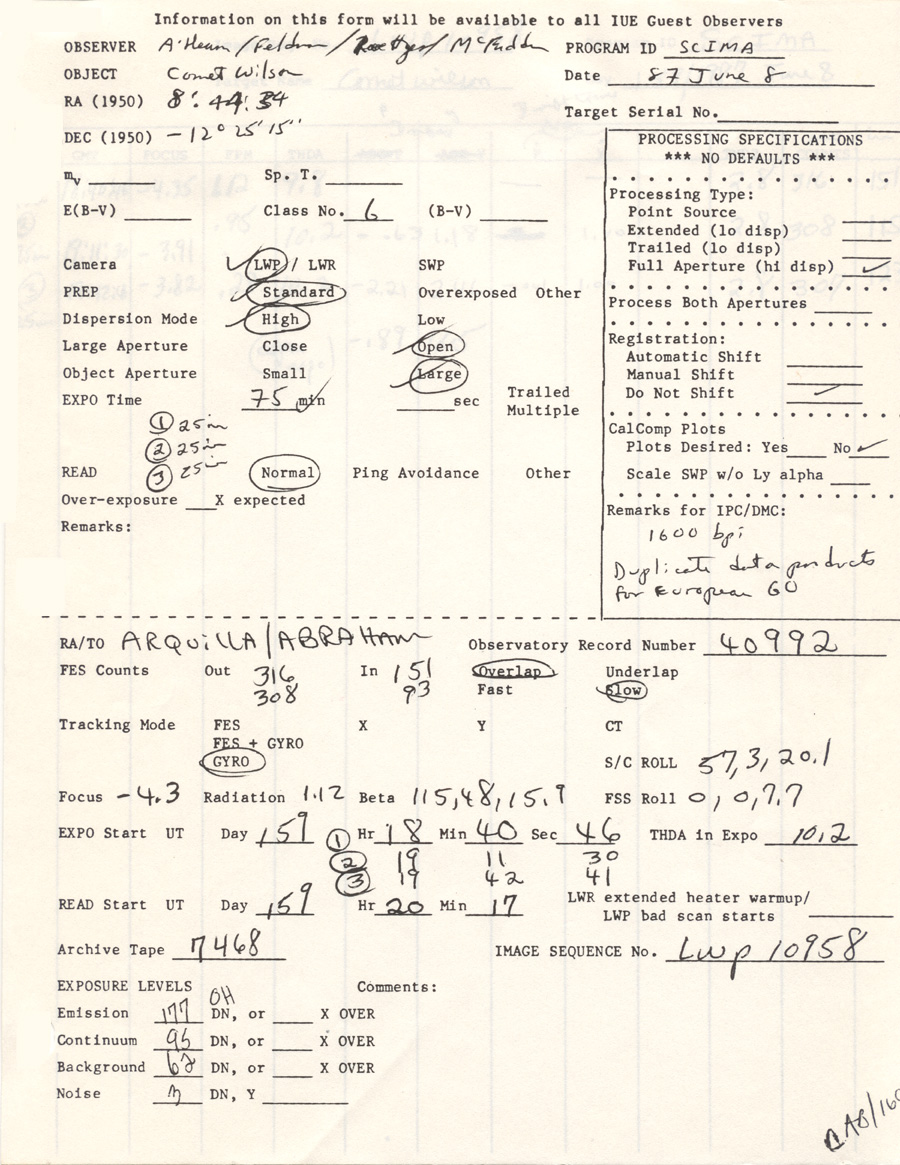 Information on this form will be available to all IUE Guest Observers
OBSERVER A'Hearn/Feldman/Roettger/McFadden PROGRAM ID SCIMA
OBJECT Comet Wilson Date 87 June 8
RA (1950) 8: 44: 34
Target Serial No.
DEC (1950) -12° 25' 15"
mv Sp. T.
E(B-V) Class No. 6 (B-V)
Camera LWP / LWR SWP
PREP Standard Overexposed Other
Dispersion Mode High Low
Large Aperture Close Open
Object Aperture Small Large
EXPO Time 75 min sec Trailed
Multiple
1 25 min
2 25 min
3 25 min
READ Normal Ping Avoidance Other
Over-exposure X expected
Remarks:
PROCESSING SPECIFICATIONS
*** NO DEFAULTS ***
Processing Type:
Point Source
Extended (lo disp)
Trailed (lo disp)
Full Aperture (hi disp) ✓
Process Both Apertures
Registration:
Automatic Shift
Manual Shift
Do Not Shift ✓
CalComp Plots
Plots Desired: Yes No ✓
Scale SWP w/o Ly alpha
Remarks for IPC/DMC:
1600 bpi
Duplicate data products
for European GO
RA/TO ARQUILLA/ABRAHAM Observatory Record Number 40992
FES Counts Out 316 In 151 Overlap Underlap
308 93 Fast Slow
Tracking Mode FES X Y CT
FES + GYRO
GYRO S/C ROLL 57,3,20.1
Focus -4.3 Radiation 1.12 Beta 115,48,15.9 FSS Roll 0,0,7.7
EXPO Start UT Day 159 1 Hr 18 Min 40 Sec 46 THDA in Expo 10.2
2 19 11 30
3 19 42 41
READ Start UT Day 159 Hr 20 Min 17 LWR extended heater warmup/
LWP bad scan starts
Archive Tape 7468 IMAGE SEQUENCE No. Lwp 10958
EXPOSURE LEVELS Comments:
OH
Emission 177 DN, or X OVER
Continuum 95 DN, or X OVER
Background 62 DN, or X OVER
Noise DN, Y